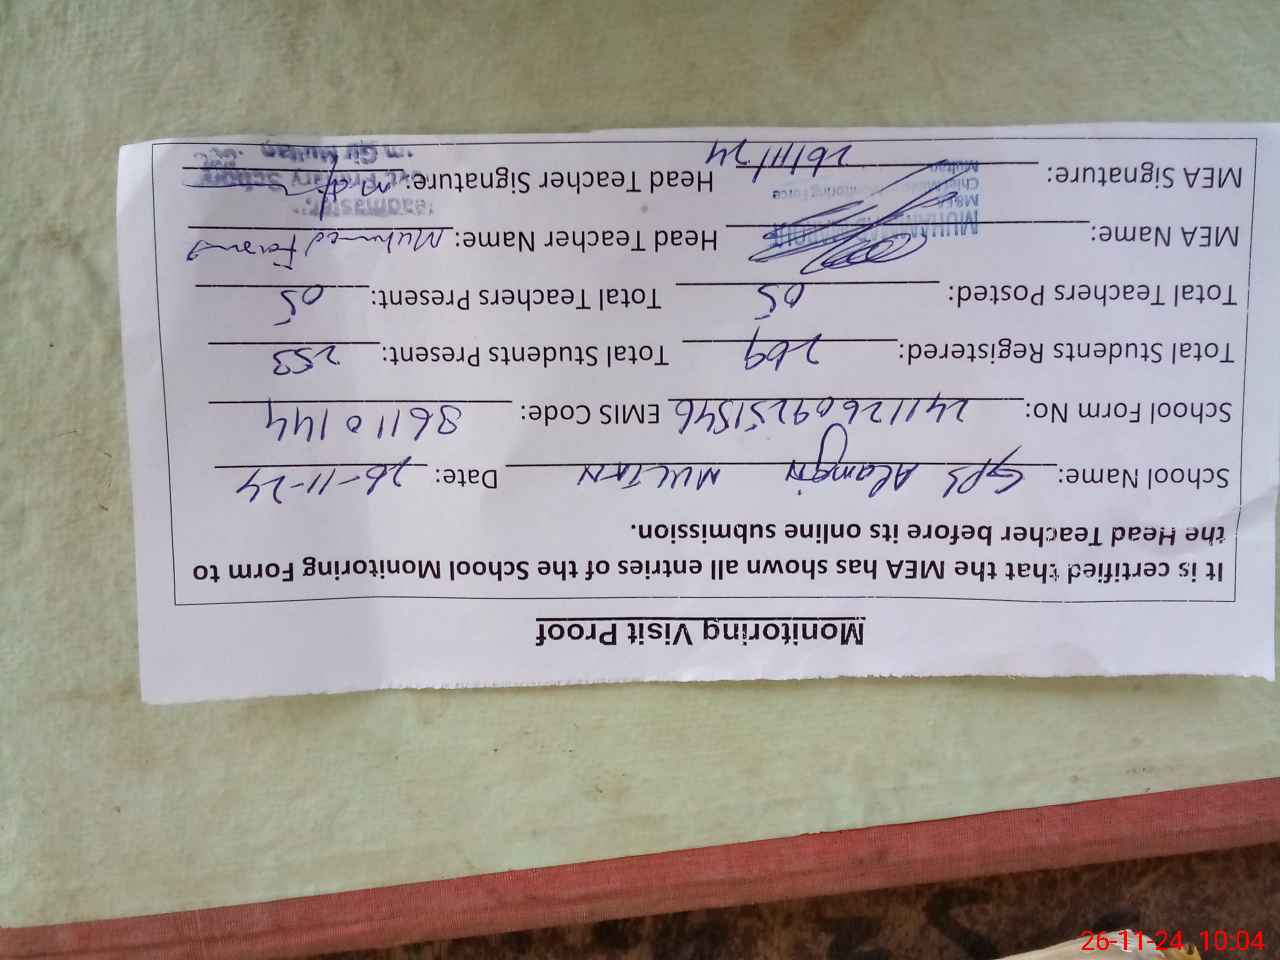 Monitoring Visit Proof
It is certified that the MEA has shown all entries of the School Monitoring Form to
the Head Teacher before its online submission.
School Name: GPS Alamgir MULTAN Date: 26-11-24
School Form No: 24112609251546 EMIS Code: 36110144
Total Students Registered: 269 Total Students Present: 253
Total Teachers Posted: 05 Total Teachers Present: 05
MEA Name: Head Teacher Name: Muhmed
MUHAMMAD
M&EA
Chief Monitoring Force
Multan
MEA Signature: 26/11/24 Head Teacher Signature:
eadmaster
Primary School
Gir Multan
26-11-24 10:04